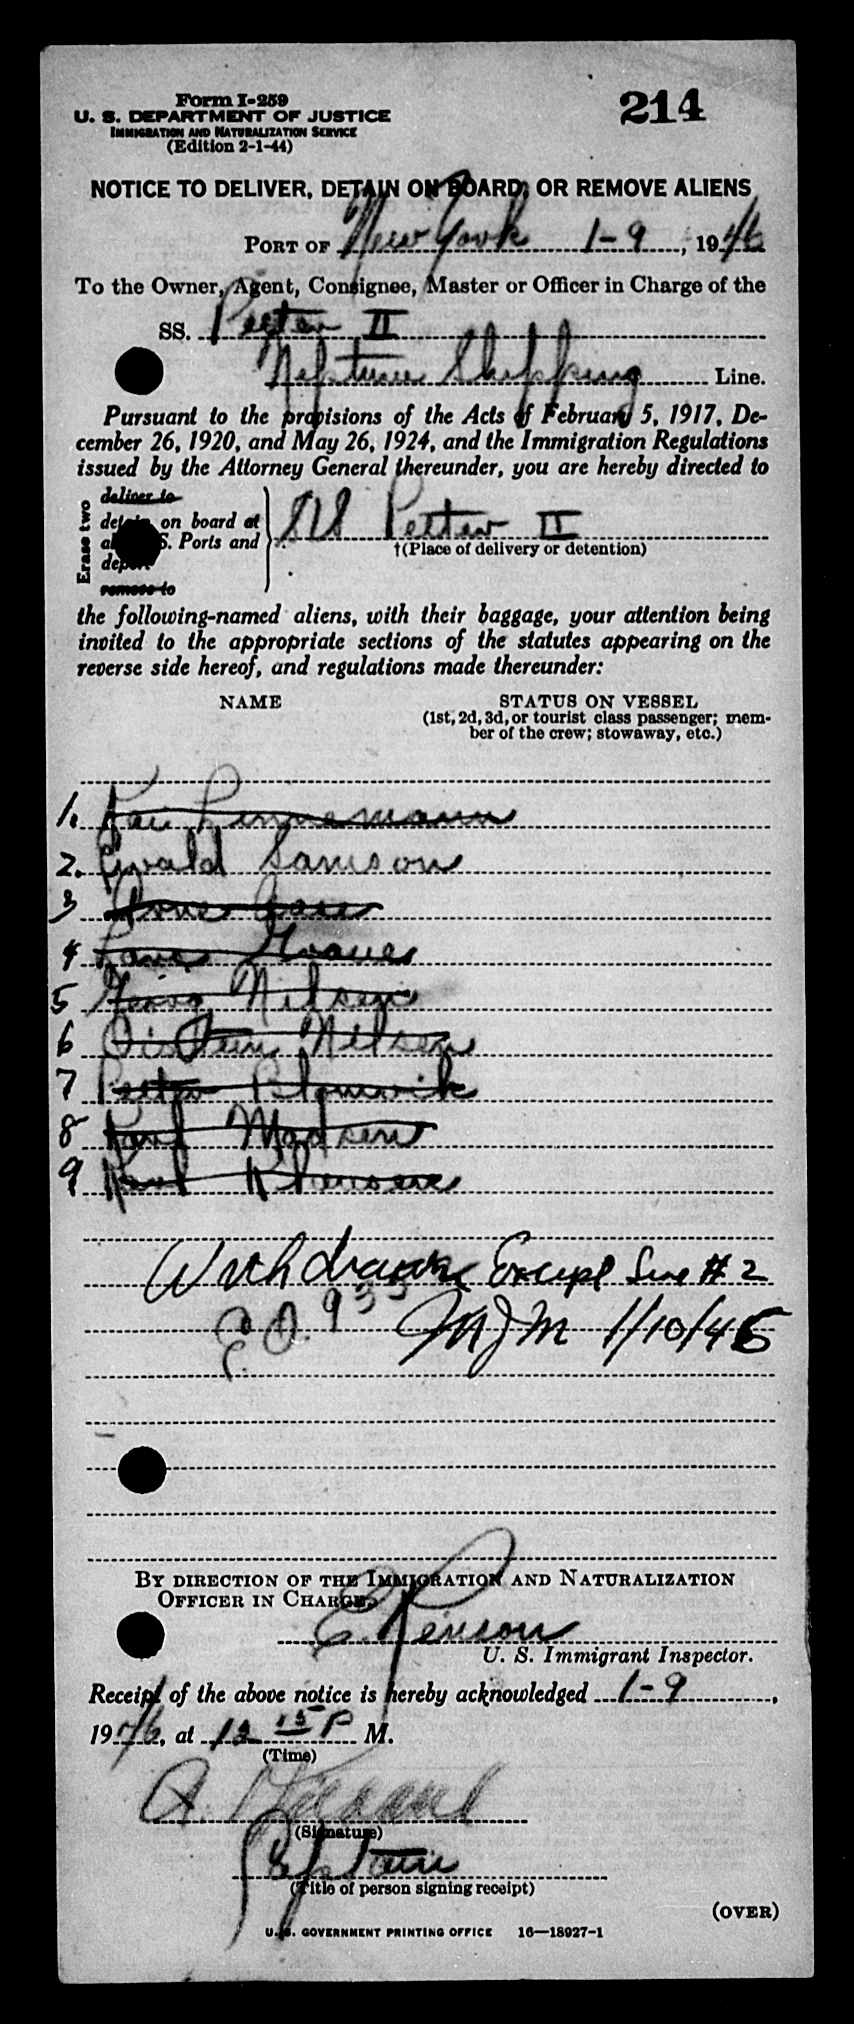 Form I-259
U. S. DEPARTMENT OF JUSTICE
IMMIGRATION AND NATURALIZATION SERVICE
(Edition 2-1-44)
214
NOTICE TO DELIVER, DETAIN ON BOARD, OR REMOVE ALIENS
PORT OF New York 1-9, 1946
To the Owner, Agent, Consignee, Master or Officer in Charge of the
SS. Petter II
Neptune Shipping Line.
Pursuant to the provisions of the Acts of February 5, 1917, De-
cember 26, 1920, and May 26, 1924, and the Immigration Regulations
issued by the Attorney General thereunder, you are hereby directed to
Erase two
deliver to
detain on board at
all U.S. Ports and
deport
remove to
SS Petter II
†(Place of delivery or detention)
the following-named aliens, with their baggage, your attention being
invited to the appropriate sections of the statutes appearing on the
reverse side hereof, and regulations made thereunder:
NAME STATUS ON VESSEL
(1st, 2d, 3d, or tourist class passenger; mem-
ber of the crew; stowaway, etc.)
1. Kai Linnemann
2. Ewald Samson
3
4
5 Nilsen
6 Oistein Nilsen
7 Petter Blomvik
8 Karl Madsen
9 Karl
Withdrawn Except Line # 2
E.O. 933 MJM 1/10/46
BY DIRECTION OF THE IMMIGRATION AND NATURALIZATION
OFFICER IN CHARGE.
E. Renson
U. S. Immigrant Inspector.
Receipt of the above notice is hereby acknowledged 1-9,
1946, at 12 15 P M.
(Time)
A.
(Signature)
Captain
(Title of person signing receipt)
(OVER)
U. S. GOVERNMENT PRINTING OFFICE 16—18927-1